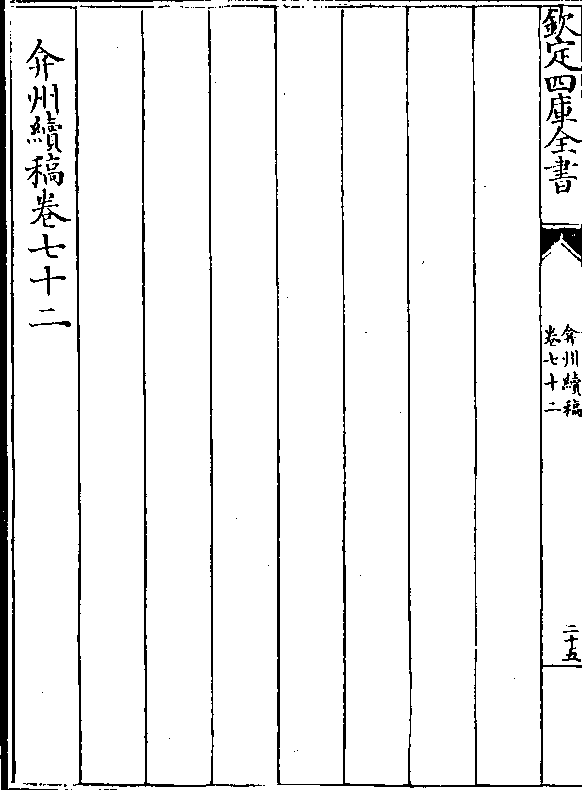 欽定四庫全書
弇州續稿
卷七十二
二十五
弇州續稿卷七十二